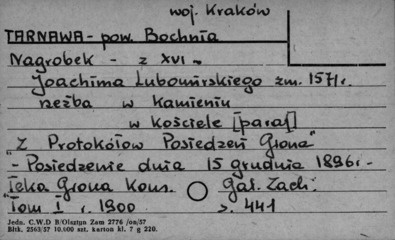 woj. Kraków
TARNAWA - pow. Bochnia
Nagrobek - z XVI w
Joachima Lubomirskiego zm. 1571 r.
rzeźba w kamieniu
w kościele [paraf]
"Z Protokółow Posiedzeń Grona"
- Posiedzenie dnia 15 grudnia 1896 r. -
"Teka Grona Kons. Gal. Zach.
"Tom I r. 1900 s. 441
Jedn. C.W.D B/Olsztyn Zam 2776 /on/57
Bltk. 2563/57 10.000 szt. karton kl. 7 g 220.